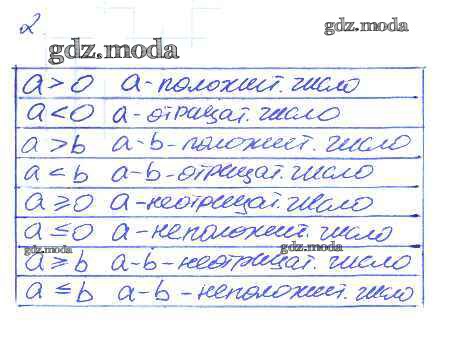 2.
gdz.moda
gdz.moda
a > 0 a - положит. число
a < 0 a - отрицат. число
a > b a - b - положит. число
a < b a - b - отрицат. число
a ≥ 0 a - неотрицат. число
a ≤ 0 a - неположит. число
gdz.moda
gdz.moda
a ≥ b a - b - неотрицат. число
a ≤ b a - b - неположит. число